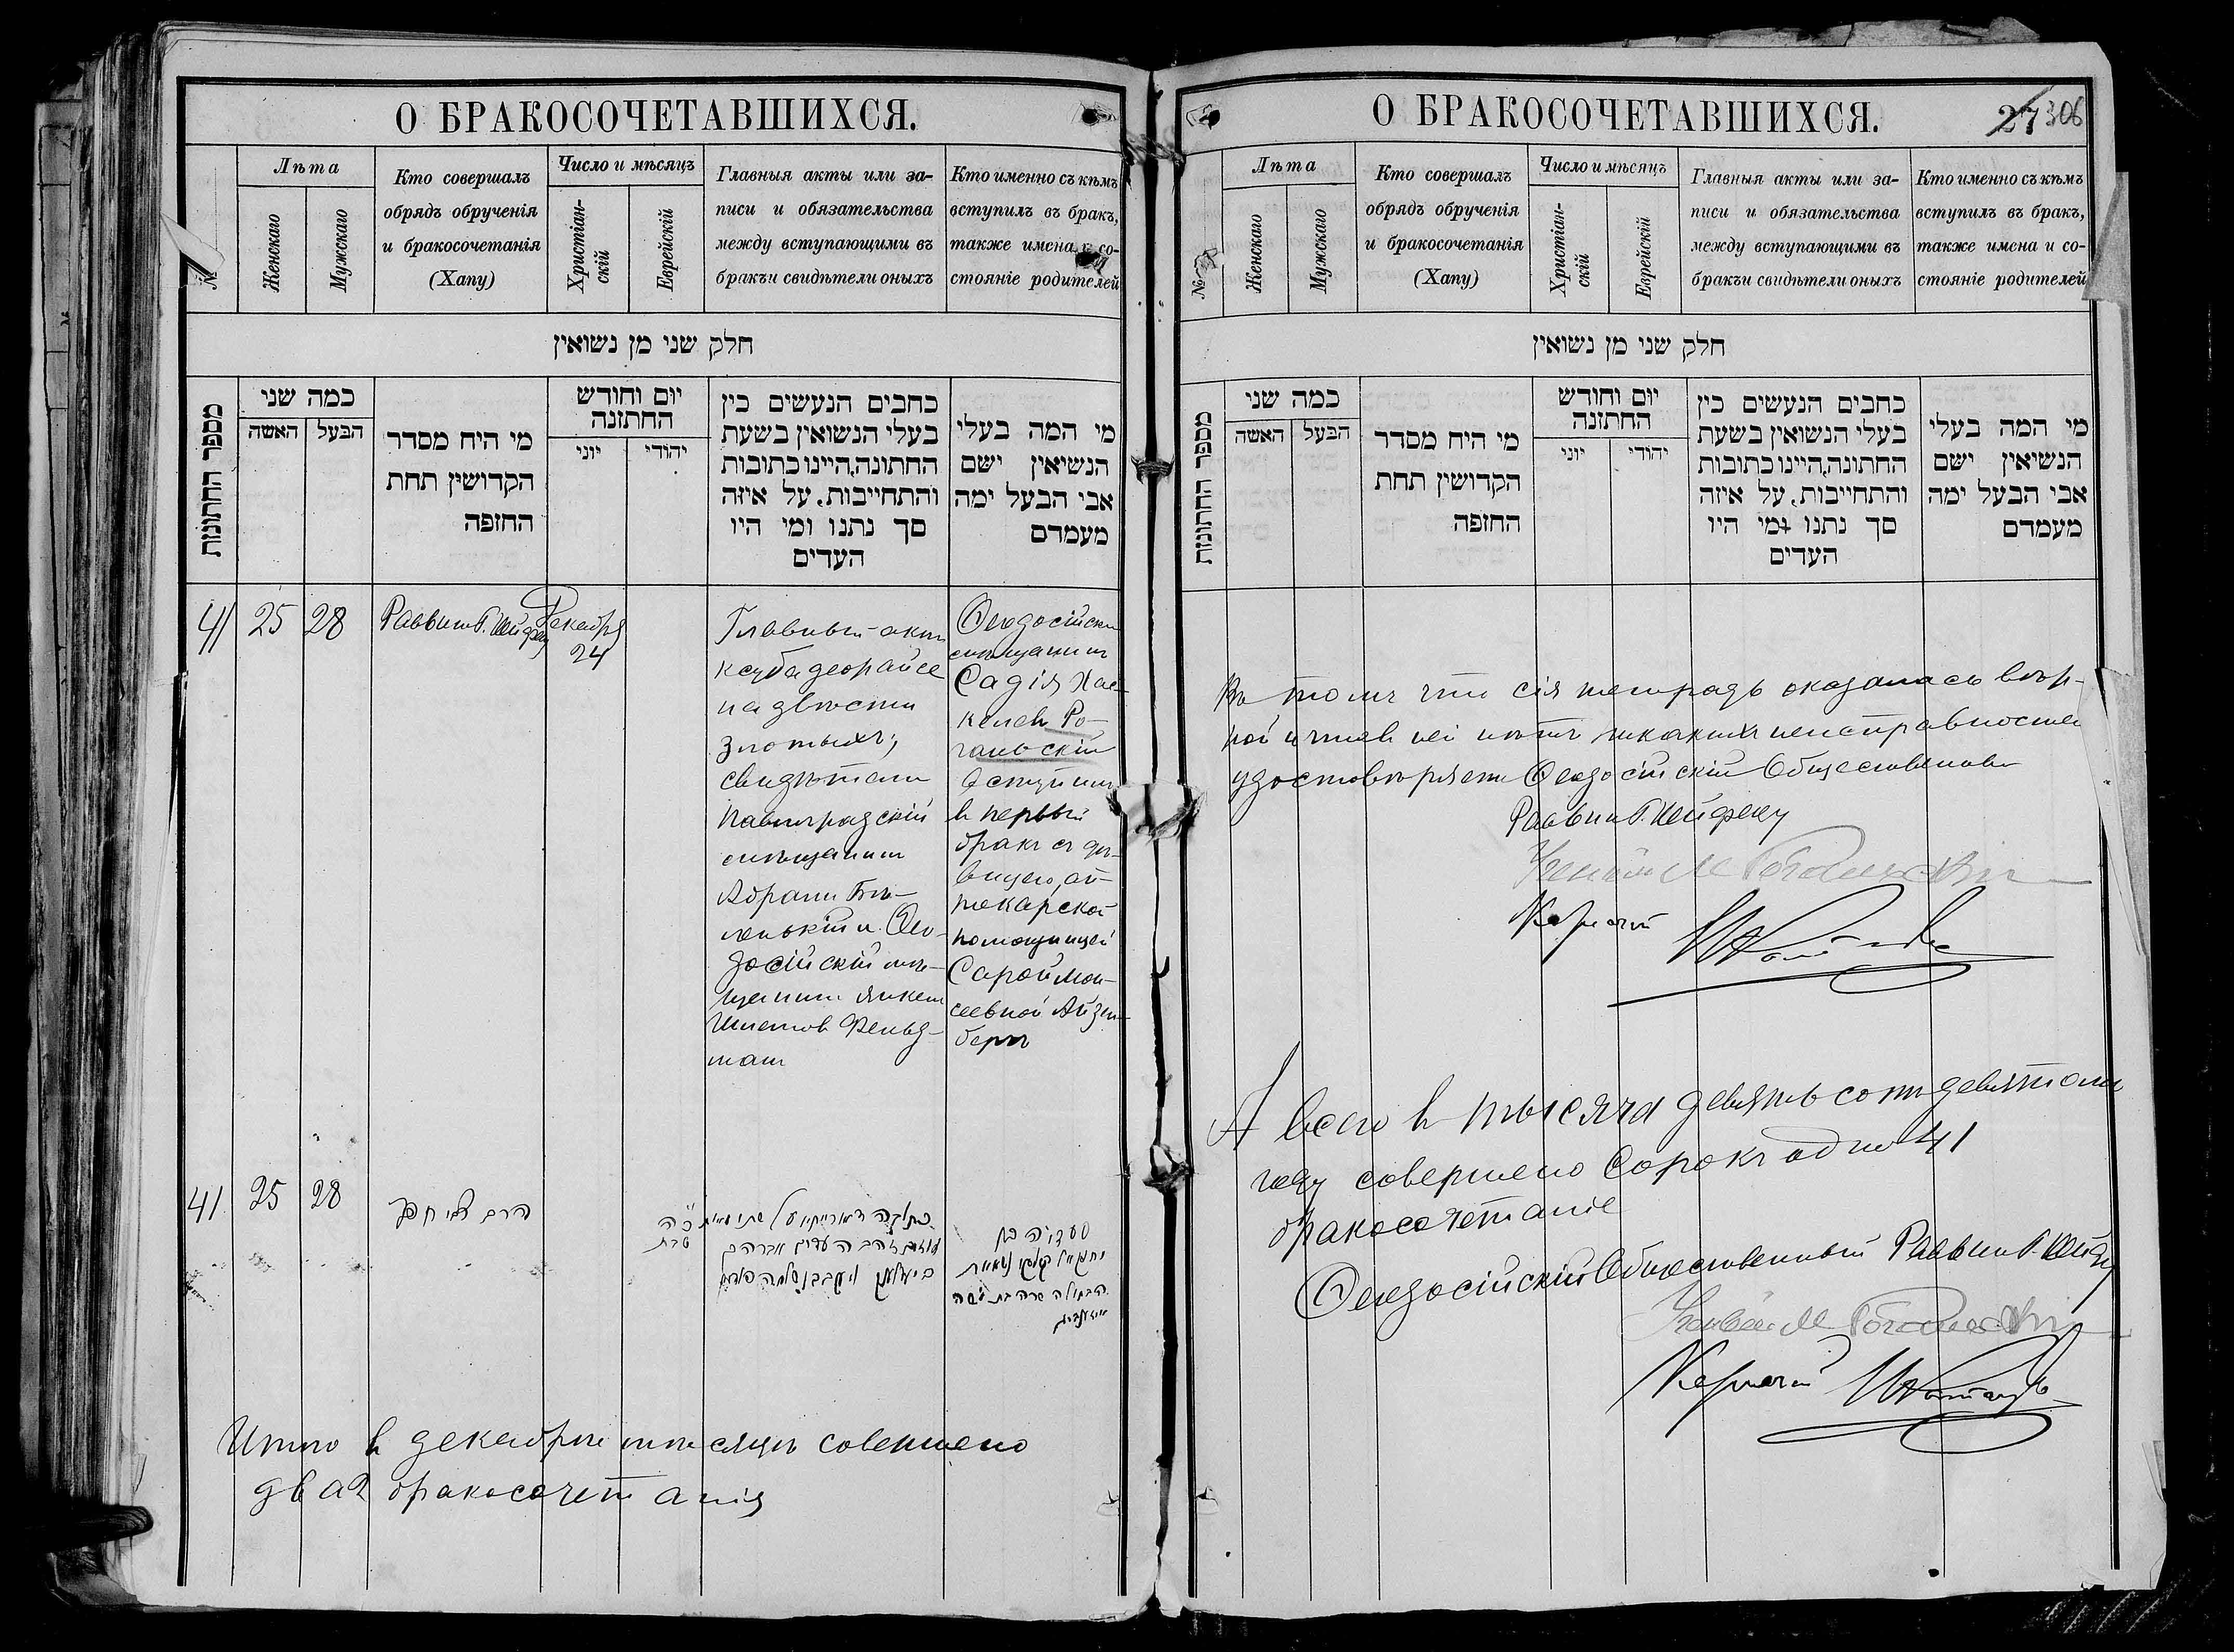 О БРАКОСОЧЕТАВШИХСЯ.
№
Лѣта
Женскаго
Мужскаго
Кто совершалъ
обрядъ обрученія
и бракосочетанія
(Хапу)
Число и мѣсяцъ
Христіан-
скій
Еврейскій
Главныя акты или за-
писи и обязательства
между вступающими въ
бракъ и свидѣтели оныхъ
Кто именно съ кѣмъ
вступилъ въ бракъ,
также имена и со-
стояніе родителей
חלק שני מן נשואין
מספר החתונות
כמה שני
האשה
הבעל
מי היח מסדר
הקדושין תחת
החופה
יום וחודש
החתונה
יוני
יהודי
כתבים הנעשים בין
בעלי הנשואין בשעת
החתונה, היינו כתובות
והתחייבות, על איזה
סך נתנו ומי היו
העדים
מי המה בעלי
הנשיאין ישם
אבי הבעל ימה
מעמדם
41
25
28
Раввинъ Г. Шейфецъ
Декабря
24
Главный актъ
ксуба деорайсе
на двѣсти
злотыхъ;
свидѣтели
Павлоградскій
мѣщанинъ
Абрамъ Бѣ-
ленькій и Ѳео-
досійскій мѣ-
щанинъ Янкель
Шлемовъ Фельд-
манъ
Ѳеодосійскій
мѣщанинъ
Садія Хас-
келевъ Ро-
гальскій
вступилъ
въ первый
бракъ съ дѣ-
вицею, ап-
текарской
помощницей
Сарой Мои-
сеевной Айзен-
бергъ
41
25
28
הרב
טבת
סעדיה בן
הבתולה שרה בת משה
Итого въ декабрѣ мѣсяцѣ совершено
два 2 бракосочетанія
О БРАКОСОЧЕТАВШИХСЯ.
27 306
№
Лѣта
Женскаго
Мужскаго
Кто совершалъ
обрядъ обрученія
и бракосочетанія
(Хапу)
Число и мѣсяцъ
Христіан-
скій
Еврейскій
Главныя акты или за-
писи и обязательства
между вступающими въ
бракъ и свидѣтели оныхъ
Кто именно съ кѣмъ
вступилъ въ бракъ,
также имена и со-
стояніе родителей
חלק שני מן נשואין
מספר החתונות
כמה שני
האשה
הבעל
מי היח מסדר
הקדושין תחת
החופה
יום וחודש
החתונה
יוני
יהודי
כתבים הנעשים בין
בעלי הנשואין בשעת
החתונה, היינו כתובות
והתחייבות, על איזה
סך נתנו ומי היו
העדים
מי המה בעלי
הנשיאין ישם
אבי הבעל ימה
מעמדם
Въ томъ что сія тетрадь оказалась вѣр-
ной и что въ ней нѣтъ никакихъ неисправностей
удостовѣряетъ Ѳеодосійскій Общественный
Раввинъ Г. Шейфецъ
А всего въ тысяча девятьсотъ девятомъ
году совершено сорокъ одно 41
бракосочетаніе
Ѳеодосійскій Общественный Раввинъ Г. Шейфецъ